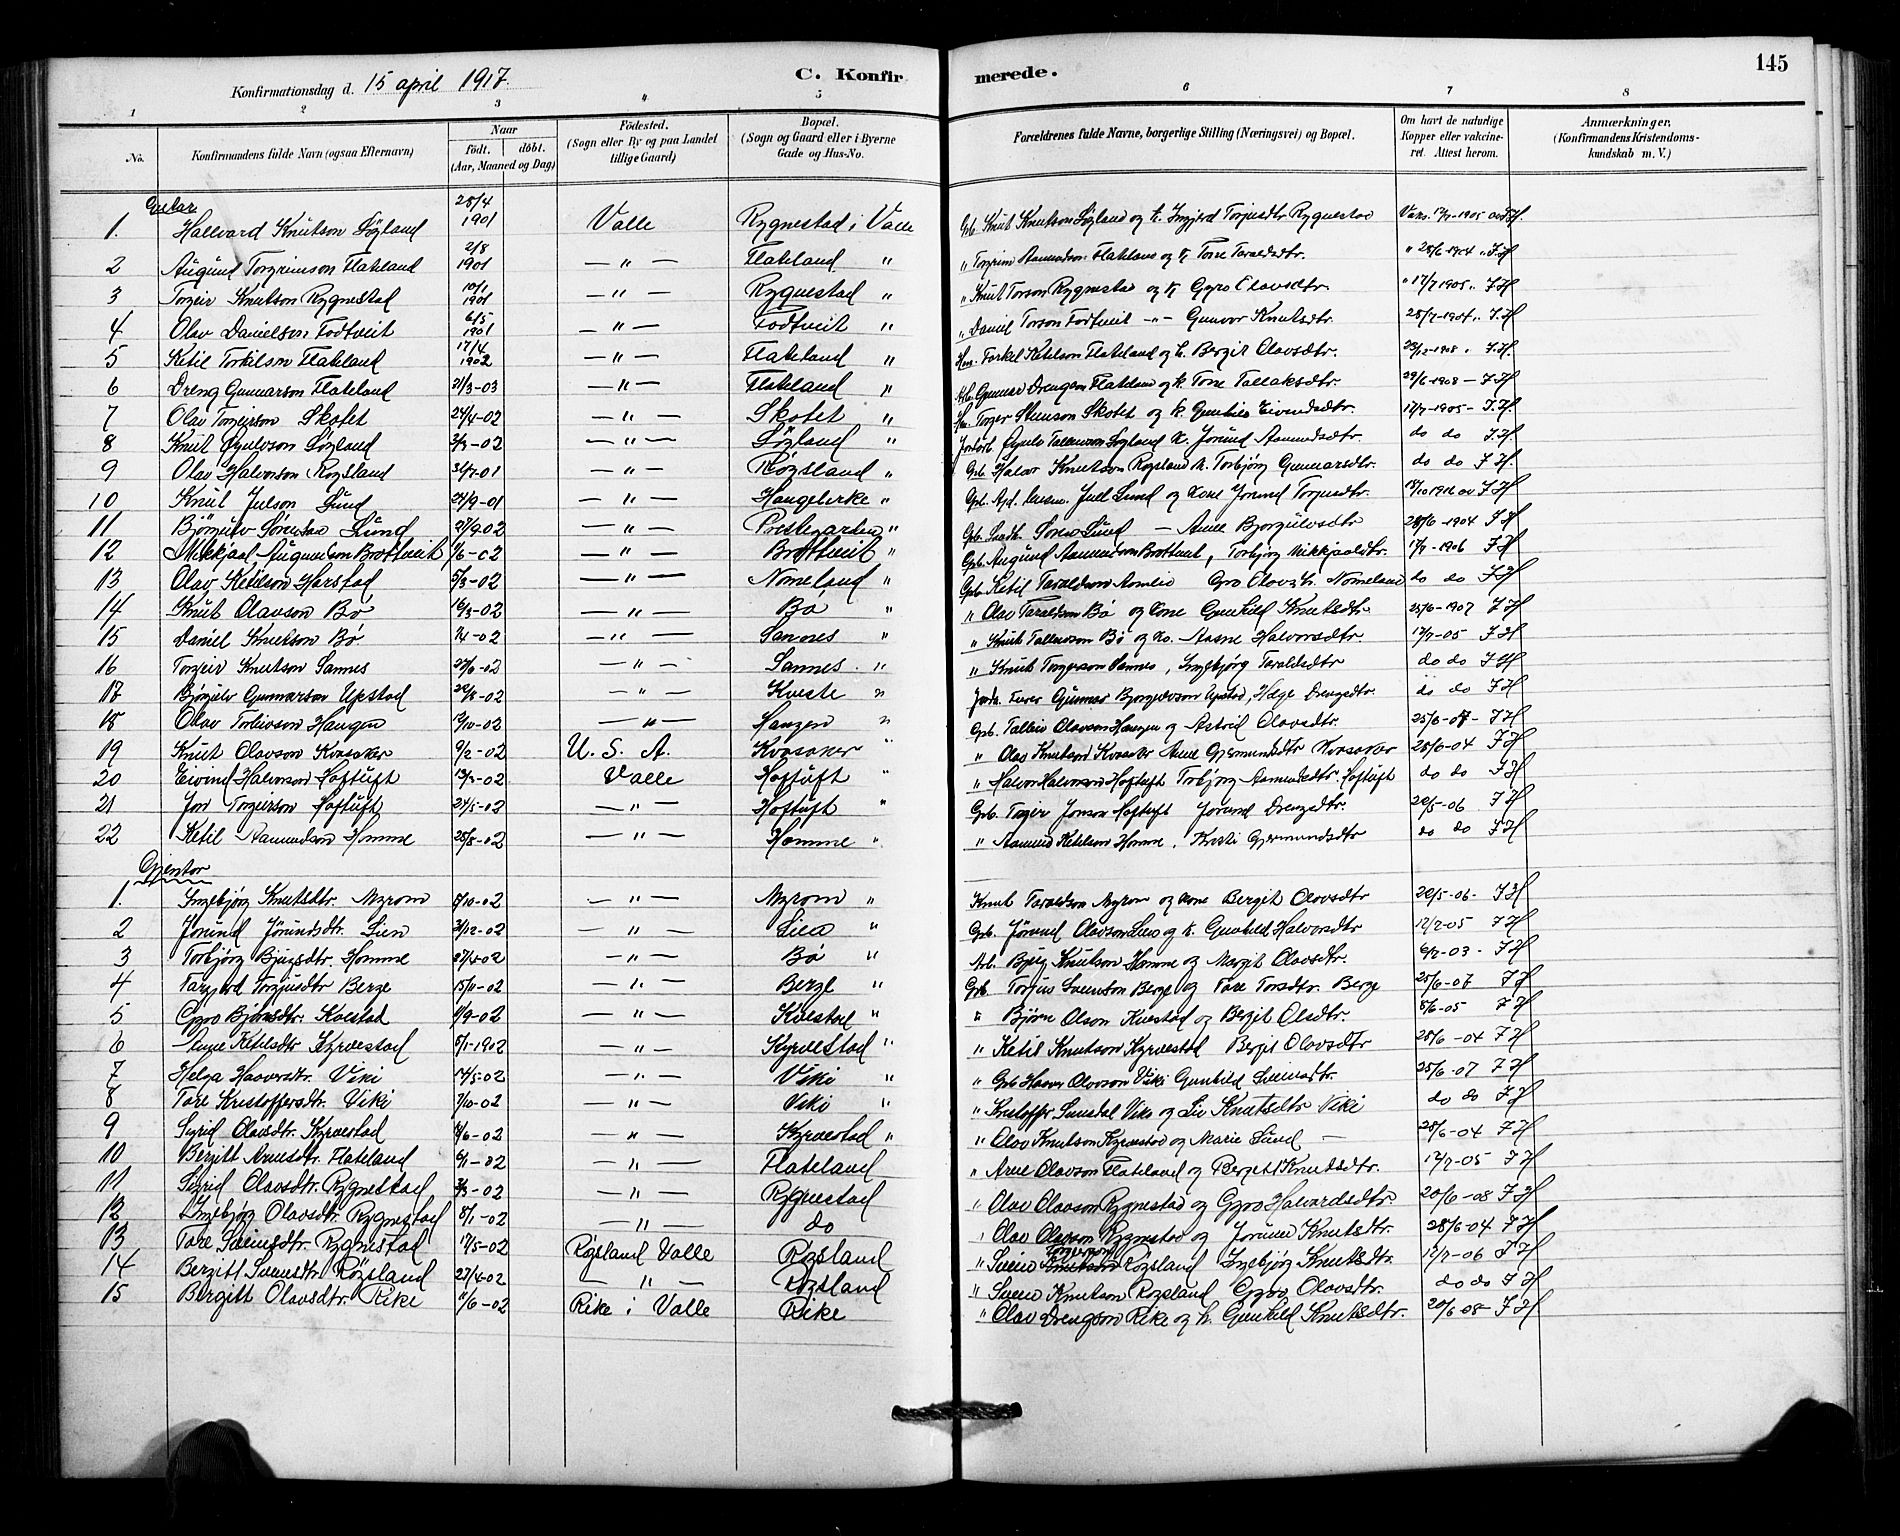 145
Konfirmationsdag d. 15 april 1917.
C. Konfirmerede.
1 2 3 4 5 6 7 8
No. Konfirmandens fulde Navn (ogsaa Efternavn) Naar født. døbt. (Aar, Maaned og Dag) Fødested. (Sogn eller By og paa Landet tillige Gaard) Bopæl. (Sogn og Gaard eller i Byerne Gade og Hus-No. Forældrenes fulde Navne, borgerlige Stilling (Næringsvei) og Bopæl. Om havt de naturlige Kopper eller vakcineret. Attest herom. Anmærkninger. (Konfirmandens Kristendomskundskab m. V.)
Gutar
1. Hallvard Knutson Løgland 28/4 1901 Valle Rygnestad i Valle Gb. Knut Knutson Løgland og k. Ingjerd Torjusdtr Rygnestad Vaks. 17/7-1905 J.H.
2 Augund Torgrimson Flateland 2/8 1901 — " — Flateland " " Torgrim Aamundson Flateland og k. Tone Taraldsdtr. " 28/6-1904 " J.H
3 Torgeir Knutson Rygnestad 10/1 1901 — " — Rygnestad " " Knut Torson Rygnestad og k. Gyro Olavsdtr. " 17/7 1905 " J.H
4 Olav Danielson Fodtveit 6/5 1901 — " — Fodtveit " " Daniel Torson Fodtveit - " - Gunvor Knutsdtr. 28/7-1904 " J.H.
5 Ketil Torkilson Flateland 17/4 1902 — " — Flateland " Torkel Ketilson Flateland og k. Bergit Olavsdtr. J.H.
6 Dreng Gunnarson Flateland 21/3-03 — " — Flateland " Gunnar Drengson Flateland og k. Tone Tallaksdtr. 29/6-1908 - J.H
7 Olav Torgeirson Skotet 24/4-02 — " — Skotet " Torger Skotet og k. Eivindsdtr. 17/7-1905 - J.H.
8 Knut Løgland 2/3-02 — " — Løgland " Løgland k. Jorund Aamundsdtr. do do J.H.
9 Olav Halvorson Rogsland 31/7-01 — " — Røgsland " Gb. Halvor Knutson Rogsland k. Torbjørg Gunnarsdtr. do do J.H.
10 Knut Julson Lund 24/9-01 — " — Haugekirke " Gb. Juel Lund og Kone Jorund Torjusdtr. J.H
11 Bjørgulv Sørenson Lund 27/9-02 — " — Prestegarden " Gb. Søren Lund — Anne Bjorgulvsdtr 28/6-1904 J.H
12 Mikkjaal Augundson Brottveit 1/6-02 — " — Brottveit " Gb. Augund Aamundson Brottveit, Torbjørg Mikkjaalsdtr. 17/7-1906 J.H
13 Olav Ketilson Harstad 5/3-02 — " — Nomeland " Gb. Ketil Taraldson Gyro Olavsdtr. Nomeland do do J.H
14 Knut Olavson Bø 16/3-02 — " — Bø " " Olav Taraldson Bø og Kone Gunhild Knutsdtr. 25/6-1907 J.H
15 Daniel Knutson Bø -02 — " — Sannes " " Knut Tallevson Bø og Ko. Aasne Halvorsdtr. 17/7-05 J.H
16 Torgeir Knutson Sannes 27/6-02 — " — Sannes. " " Knut Torgerson Sannes, Ingebjørg Taraldsdtr do do J.H
17 Bjørgulv Gunnarson Upstad 20/8-02 — " — Kveste " Gunnar Bjørgulvson Upstad, Hæge Drengsdtr. do do J.H
18 Olav Torleivson Haugen 12/10-02 — " — Haugen " Gb. Talleiv Olavson Haugen og Astrid Olavsdtr. 25/6-07- J.H
19 Knut Olavson Kvasaker 9/2-02 U. S. A. Kvasaker " " Olav Knutson Kvasaker Anne Gjermundsdtr Kvasaker 28/6-04 J.H
20 Eivind Halvorson Hoftuft 13/3-02 Valle Hoftuft " " Halvor Halvorson Hoftuft Torbjørg Aamundsdtr Hoftuft do do J.H
21 Jon Torgeirson Hoftuft 24/5-02 — " — Hoftuft " Gb. Torger Jonson Hoftuft Jorund Drengsdtr. 20/5-06 J.H
22 Ketil Aamundson Homme 25/8-02 — " — Homme " " Aamund Ketilson Homme, Kristi Gjermundsdtr do do J.H
Gjentor
1. Ingebjørg Knutsdtr. Nyrom 5/10-02 — " — Nyrom " Knut Taraldson Nyrom og Kone Bergit Olavsdtr 20/5-06- J.H
2 Jorund Jørundsdtr. Lien 2/12-02 — " — Lien " Gb. Jørund Olavson Lien og k. Gunhild Halvorsdtr 17/7-05 J.H
3 Torbjørg Bjugsdtr. Homme 27/4-02 — " — Bø " Arb. Bjug Knutson Homme og Margit Olavsdtr. 9/2-03 - J.H
4 Targjerd Torgjusdtr Berge 15/11-02 — " — Berge " Gb. Torjus Sveinson Berge og Tore Torsdtr. Berge 25/6-07 J.H
5 Gyro Bjørnsdtr. Kvestad 1/9-02 — " — Kvestad " " Bjørn Olson Kvestad og Bergit Olsdtr. 8/6-05 J.H
6 Anne Ketilsdtr Kyrvestad 5/1-1902 — " — Kyrvestad " " Ketil Knutson Kyrvestad Bergit Olavsdtr 28/6-04 J.H
7 Helga Haavorsdtr. Viki 14/5-02 — " — Viki " " Gb Haavor Olavson Viki Gunhild Sveinsdtr. 25/6-07 J.H
8 Tore Kristoffersdtr. Viki 7/10-02 — " — Viki " " Kristoffer Viki og Liv Knutsdtr Viki do do J.H
9 Sigrid Olavsdtr. Kyrvestad 4/6-02 — " — Kyrvestad " " Olav Knutson Kyrvestad og Marie Lund — 28/6-04 J.H
10 Bergitt Arnesdtr. Flateland 6/1-02 — " — Flateland " Arne Olavson Flateland og Bergit Knutsdtr. 17/7-05 J.H
11 Sigrid Olavsdtr. Rygnestad 3/3-02 — " — Rygnestad " Olav Olavson Rygnestad og Gyro Halvardsdtr. 20/6-08 J.H
12 Ingebjørg Olavsdtr. Rygnestad 8/1-02 — " — do " Olav Olavson Rygnestad og Jorunn Knutsdtr. 28/6-04 J.H
13 Tore Sveinsdtr. Rygnestad 17/5-02 Røgsland Valle Røgsland " Svein Knutson Torgeirson Røgsland Ingebjørg Knutsdtr. 17/7-06 J.H
14 Bergitt Sveinsdtr. Røgsland 27/4-02 — " — Rogsland " Svein Knutson Rogsland Gyro Olavsdtr. do do J.H
15 Bergitt Olavsdtr. Rike 11/6-02 Rike i Valle Rike " Olav Drengson Rike og k. Gunhild Knutsdtr. 20/6-08 J.H